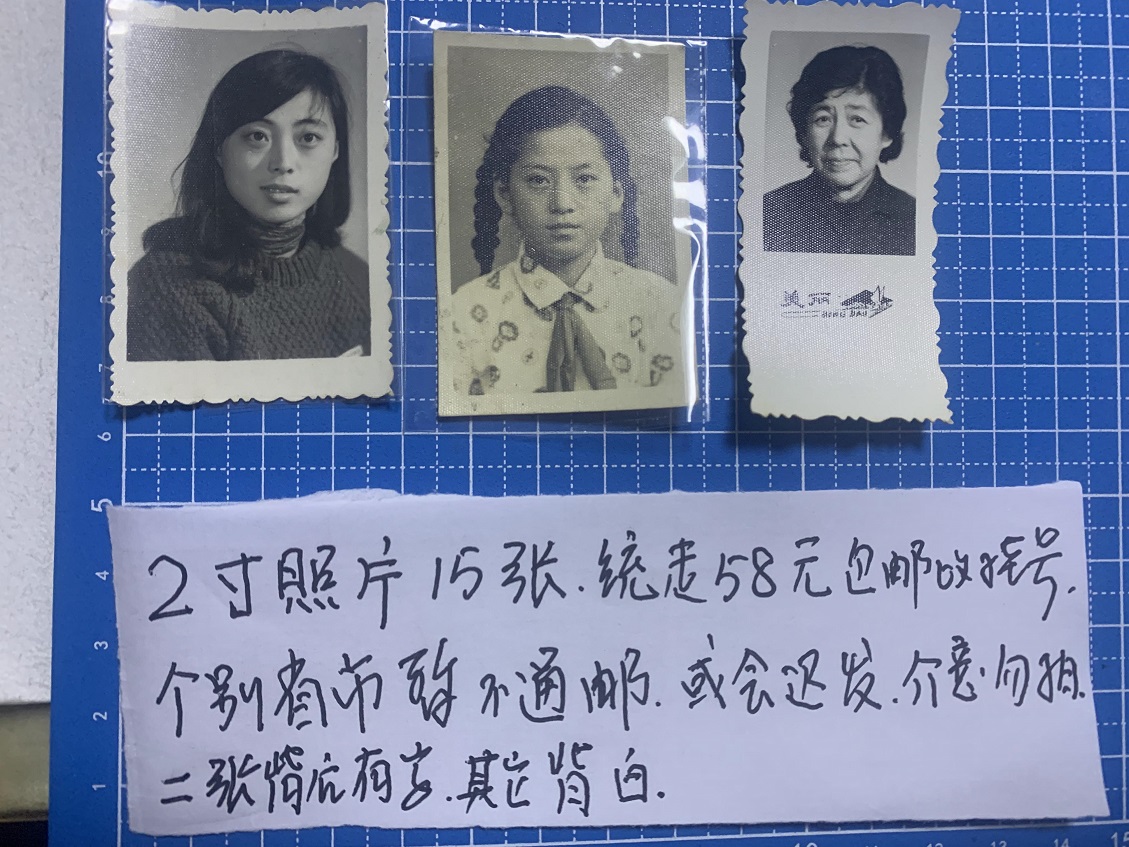 2寸照片15张.统走58元包邮政挂号.
个别省市暂不通邮.或会迟发.介意勿拍.
二张背后有字.其它背白.
6
5
4
3
2
1